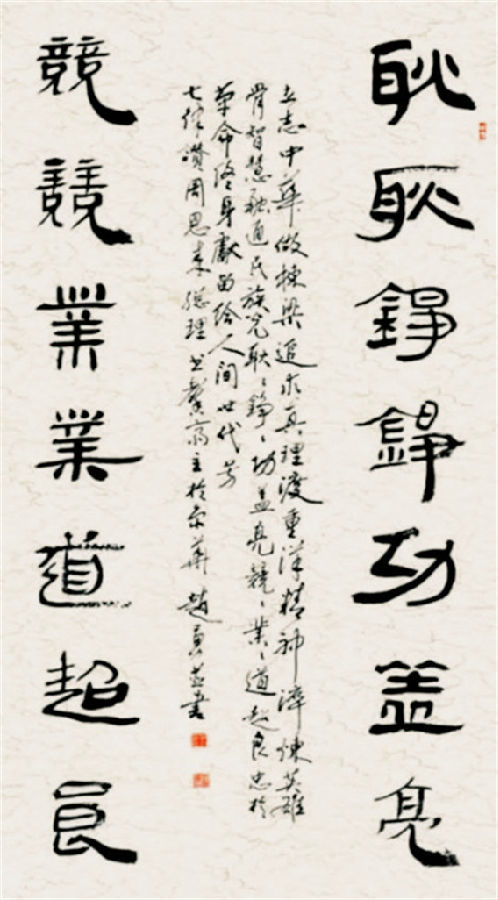 耿耿錚錚功盖亮
立志中華做棟梁追求真理渡重洋精神淬煉英雄
骨智慧融通民族光耿々錚々功盖亮競々業々道超良忠於
革命終身獻留給人間世代芳
七律讚周恩来總理书馨斋主於京華趙書
競競業業道超良